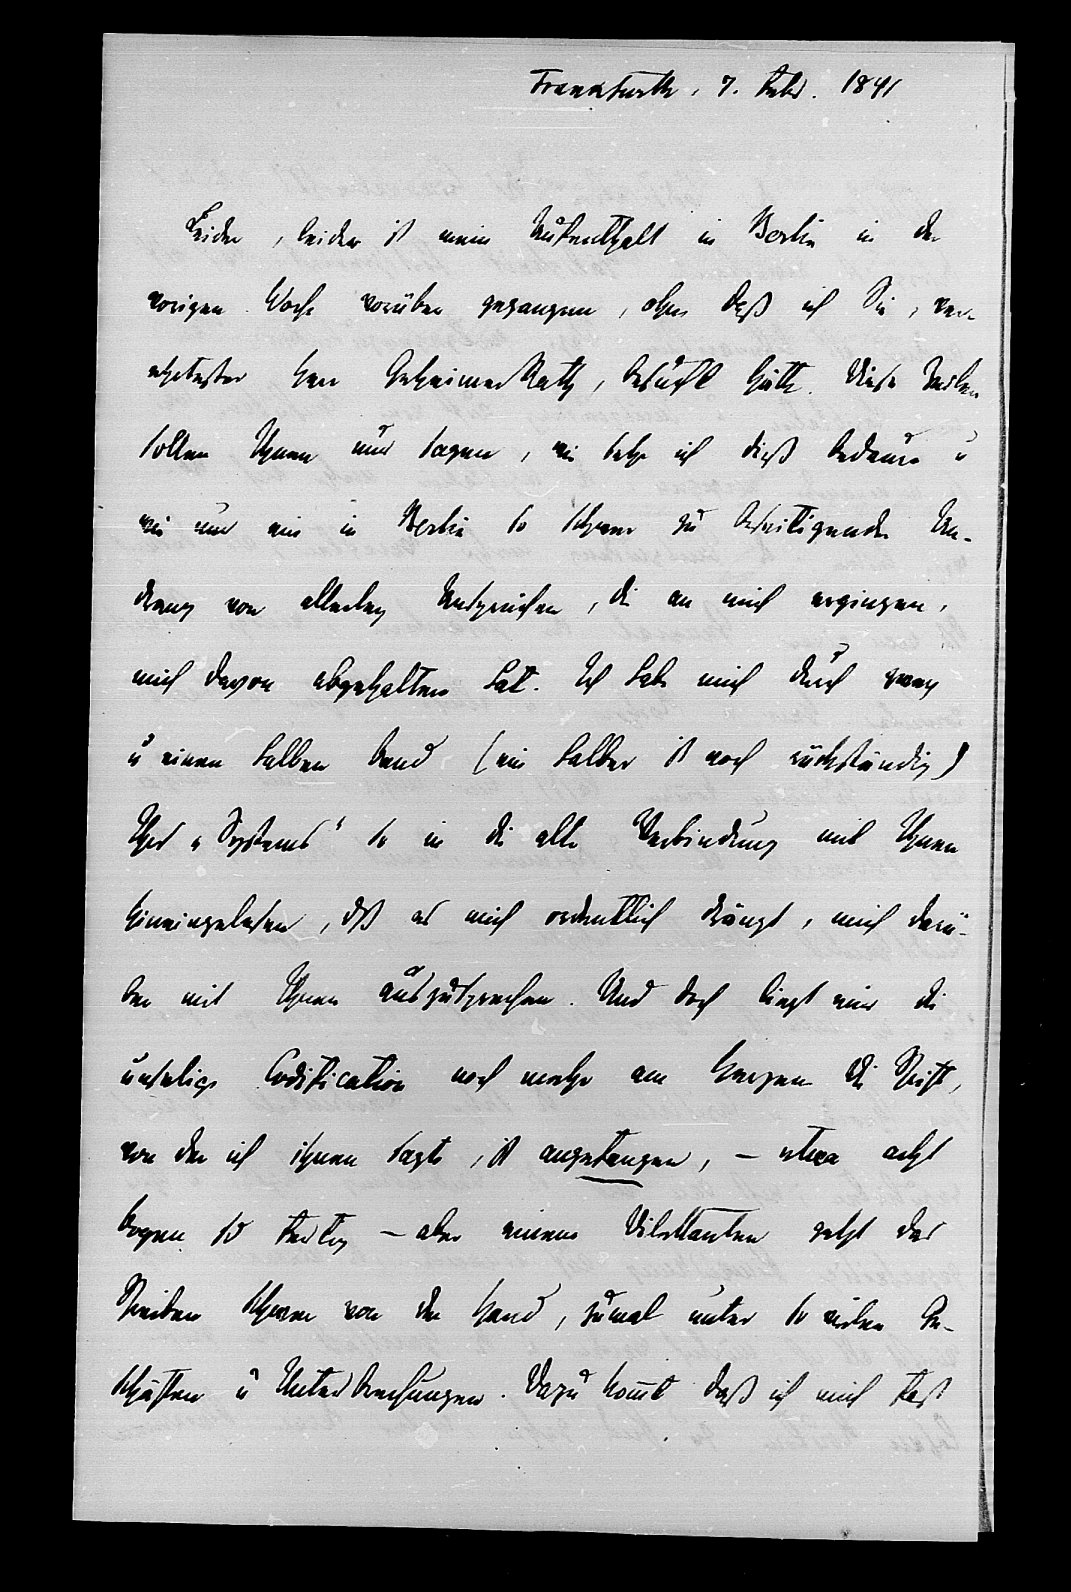 Frankfurth, 7. Febr. 1841
Leider, leider ist mein Aufenthalt in Berlin in der
vorigen Woche vorüber gegangen, ohne daß ich Sie, ver-
ehrtester Herr Geheimer Rath, besucht hätte. Diese Zeilen
sollen Ihnen nur sagen, wie sehr ich dieß bedaure u
wie nur ein in Berlin so schwer zu beseitigender An-
drang von allerley Ansprüchen, die an mich ergingen,
mich davon abgehalten hat. Ich habe mich durch zwey
u einen halben Band (ein halber ist noch rückständig)
Ihres „Systems“ so in die alte Verbindung mit Ihnen
hineingelesen, daß es mich ordentlich drängt, mich darü-
ber mit Ihnen auszusprechen. Und doch liegt mir die
unselige Codification noch mehr am Herzen. Die Schrift,
von der ich ihnen sagte, ist angefangen, – etwa acht
Bogen ist fertig – aber einem Dilettanten geht das
Schreiben schwer von der Hand, zumal unter so vielen Ge-
schäften u Unterbrechungen. Dazu komt daß ich mich fast